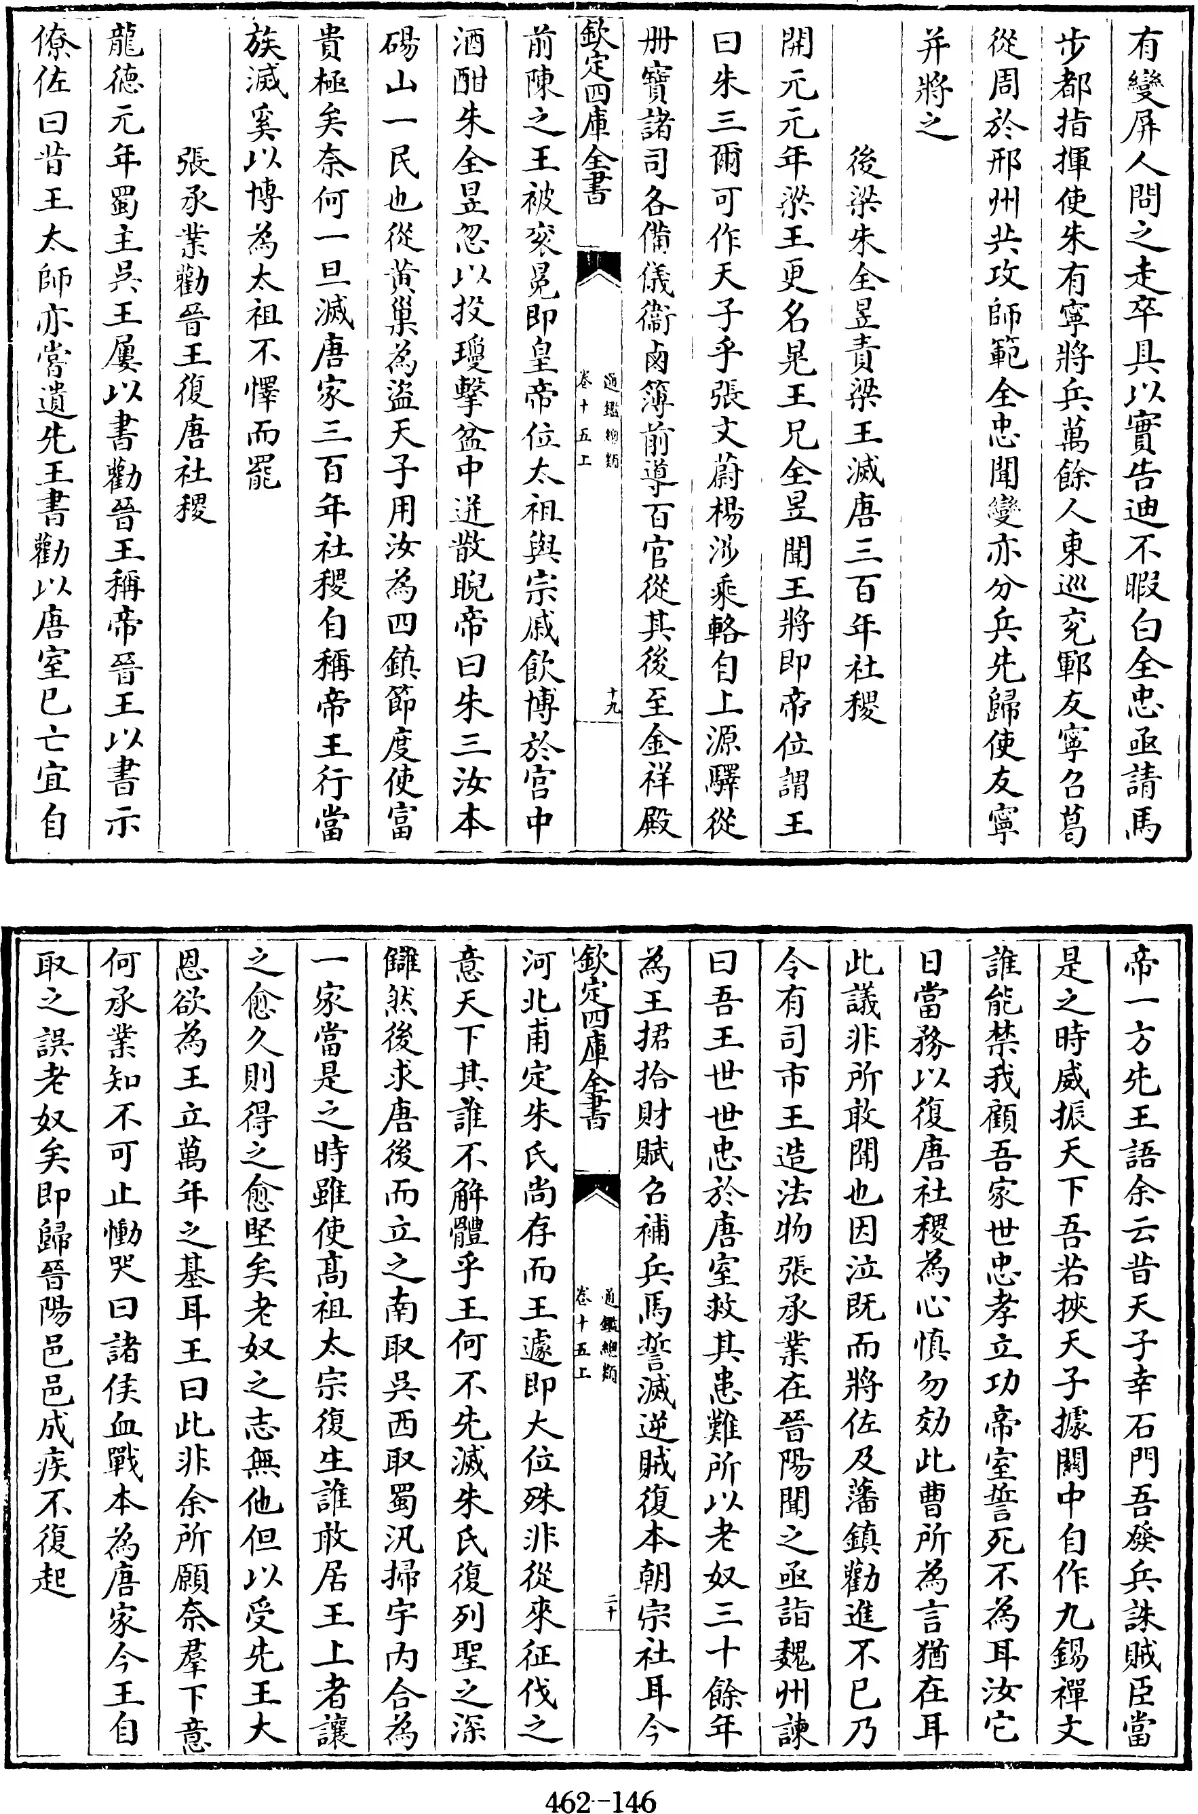 有變屏人問之走卒具以實告迪不暇白全忠亟請馬
步都指揮使朱有寧將兵萬餘人東巡兖鄆友寧召葛
從周於邢州共攻師範全忠聞變亦分兵先歸使友寧
并將之
後梁朱全昱責梁王滅唐三百年社稷
開元元年梁王更名晃王兄全昱聞王將即帝位謂王
曰朱三爾可作天子乎張文蔚楊涉乘輅自上源驛從
册寶諸司各備儀衞鹵簿前導百官從其後至金祥殿
欽定四庫全書
通鑑總類
卷十五上
十九
前陳之王被衮冕即皇帝位太祖與宗戚飲博於宫中
酒酣朱全昱忽以投瓊擊盆中迸散睨帝曰朱三汝本
碭山一民也從黄巢為盜天子用汝為四鎮節度使富
貴極矣奈何一旦滅唐家三百年社稷自稱帝王行當
族滅奚以博為太祖不懌而罷
張承業勸晉王復唐社稷
龍德元年蜀主吳王屢以書勸晉王稱帝晉王以書示
僚佐曰昔王太師亦嘗遺先王書勸以唐室已亡宜自
帝一方先王語余云昔天子幸石門吾發兵誅賊臣當
是之時威振天下吾若挾天子據關中自作九錫禪文
誰能禁我顧吾家世忠孝立功帝室誓死不為耳汝它
日當務以復唐社稷為心慎勿効此曹所為言猶在耳
此議非所敢聞也因泣既而將佐及藩鎮勸進不已乃
令有司市玉造法物張承業在晉陽聞之亟詣魏州諫
曰吾王世世忠於唐室救其患難所以老奴三十餘年
為王捃拾財賦召補兵馬誓滅逆賊復本朝宗社耳今
欽定四庫全書
通鑑總類
卷十五上
二十
河北甫定朱氏尚存而王遽即大位殊非從來征伐之
意天下其誰不解體乎王何不先滅朱氏復列聖之深
讎然後求唐後而立之南取吳西取蜀汎掃宇内合為
一家當是之時雖使髙祖太宗復生誰敢居王上者讓
之愈久則得之愈堅矣老奴之志無他但以受先王大
恩欲為王立萬年之基耳王曰此非余所願奈羣下意
何承業知不可止慟哭曰諸侯血戰本為唐家今王自
取之誤老奴矣即歸晉陽邑邑成疾不復起
462-146